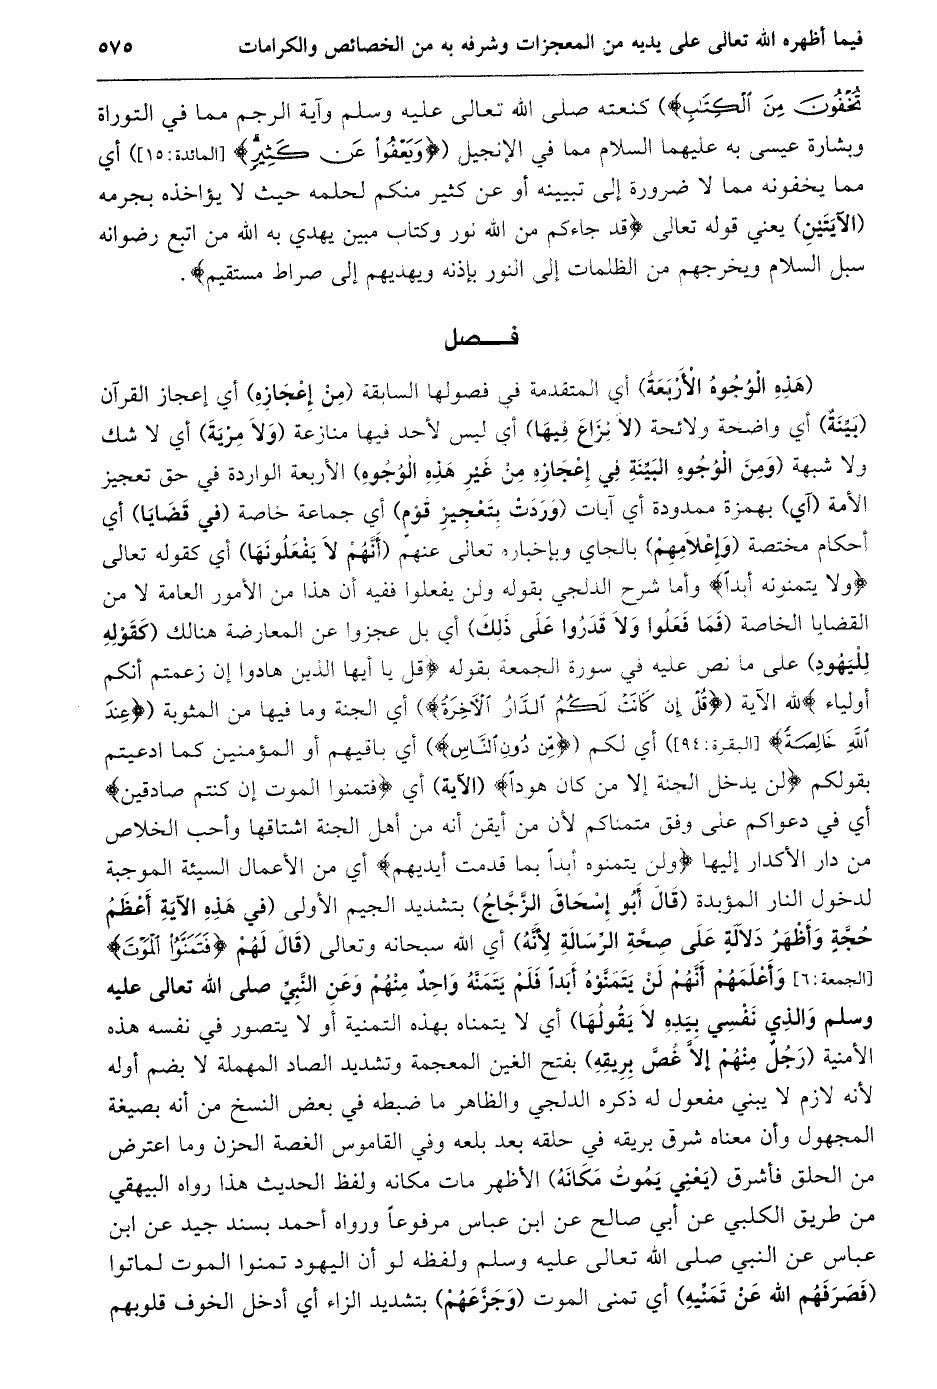 فيما أظهره الله تعالى على يديه من المعجزات وشرفه به من الخصائص والكرامات ٥٧٥
تُخْفُونَ مِنَ ٱلْكِتَٰبِ﴾) كنعته صلى الله تعالى عليه وسلم وآية الرجم مما في التوراة
وبشارة عيسى به عليهما السلام مما في الإنجيل (﴿وَيَعْفُواْ عَن كَثِيرٍ﴾ [المائدة:١٥]) أي
مما يخفونه مما لا ضرورة إلى تبيينه أو عن كثير منكم لحلمه حيث لا يؤاخذه بجرمه
(الآيَتَيْنِ) يعني قوله تعالى ﴿قد جاءكم من الله نور وكتاب مبين يهدي به الله من اتبع رضوانه
سبل السلام ويخرجهم من الظلمات إلى النور بإذنه ويهديهم إلى صراط مستقيم﴾.
فـــصل
(هَذِهِ الْوُجُوهُ الْأَرْبَعَةُ) أي المتقدمة في فصولها السابقة (مِنْ إِعْجَازِهِ) أي إعجاز القرآن
(بَيِّنَةٌ) أي واضحة ولائحة (لاَ نِزَاعَ فِيهَا) أي ليس لأحد فيها منازعة (وَلاَ مِرْيَةَ) أي لا شك
ولا شبهة (وَمِنَ الْوُجُوهِ البَيِّنَةِ فِي إِعْجَازِهِ مِنْ غَيْرِ هَذِهِ الْوُجُوهِ) الأربعة الواردة في حق تعجيز
الأمة (آي) بهمزة ممدودة أي آيات (وَرَدَتْ بِتَعْجِيزِ قَوْمٍ) أي جماعة خاصة (في قَضَايَا) أي
أحكام مختصة (وَإِعْلاَمِهِمْ) بالجاي وبإخباره تعالى عنهم (أَنَّهُمْ لاَ يَفْعَلُونَهَا) أي كقوله تعالى
﴿ولا يتمنونه أبداً﴾ وأما شرح الدلجي بقوله ولن يفعلوا ففيه أن هذا من الأمور العامة لا من
القضايا الخاصة (فَمَا فَعَلُوا وَلاَ قَدَرُوا عَلَى ذَلِكَ) أي بل عجزوا عن المعارضة هنالك (كَقَوْلِهِ
لِلْيَهُودِ) على ما نص عليه في سورة الجمعة بقوله ﴿قل يا أيها الذين هادوا إن زعمتم أنكم
أولياء ﴾لله الآية (﴿قُلْ إِن كَانَتْ لَكُمُ ٱلدَّارُ ٱلْآخِرَةُ﴾) أي الجنة وما فيها من المثوبة (﴿عِندَ
ٱللَّهِ خَالِصَةً﴾ [البقرة:٩٤]) أي لكم (﴿مِّن دُونِ ٱلنَّاسِ﴾) أي باقيهم أو المؤمنين كما ادعيتم
بقولكم ﴿لن يدخل الجنة إلا من كان هوداً﴾ (الآية) أي ﴿فتمنوا الموت إن كنتم صادقين﴾
أي في دعواكم على وفق متمناكم لأن من أيقن أنه من أهل الجنة اشتاقها وأحب الخلاص
من دار الأكدار إليها ﴿ولن يتمنوه أبداً بما قدمت أيديهم﴾ أي من الأعمال السيئة الموجبة
لدخول النار المؤبدة (قَالَ أَبُو إِسْحَاقَ الزَّجَّاجُ) بتشديد الجيم الأولى (في هَذِهِ الآيَةِ أَعْظَمُ
حُجَّةٍ وَأَظْهَرُ دَلاَلَةٍ عَلَى صِحَّةِ الرِّسَالَةِ لِأَنَّهُ) أي الله سبحانه وتعالى (قَالَ لَهُمْ ﴿فَتَمَنَّوُاْ ٱلْمَوْتَ﴾
[الجمعة:٦] وَأَعْلَمَهُمْ أَنَّهُمْ لَنْ يَتَمَنَّوْهُ أَبَداً فَلَمْ يَتَمَنَّهُ وَاحِدٌ مِنْهُمْ وَعَنِ النَّبِيِّ صلى الله تعالى عليه
وسلم وَالذِي نَفْسِي بِيَدِهِ لاَ يَقُولُهَا) أي لا يتمناه بهذه التمنية أو لا يتصور في نفسه هذه
الأمنية (رَجُلٌ مِنْهُمْ إِلاَّ غَصَّ بِرِيقِهِ) بفتح الغين المعجمة وتشديد الصاد المهملة لا بضم أوله
لأنه لازم لا يبني مفعول له ذكره الدلجي والظاهر ما ضبطه في بعض النسخ من أنه بصيغة
المجهول وأن معناه شرق بريقه في حلقه بعد بلعه وفي القاموس الغصة الحزن وما اعترض
من الحلق فأشرق (يَعْنِي يَمُوتُ مَكَانَهُ) الأظهر مات مكانه ولفظ الحديث هذا رواه البيهقي
من طريق الكلبي عن أبي صالح عن ابن عباس مرفوعاً ورواه أحمد بسند جيد عن ابن
عباس عن النبي صلى الله تعالى عليه وسلم ولفظه لو أن اليهود تمنوا الموت لماتوا
(فَصَرَفَهُم الله عَنْ تَمَنِّيهِ) أي تمنى الموت (وَجَزَّعَهُمْ) بتشديد الزاء أي أدخل الخوف قلوبهم